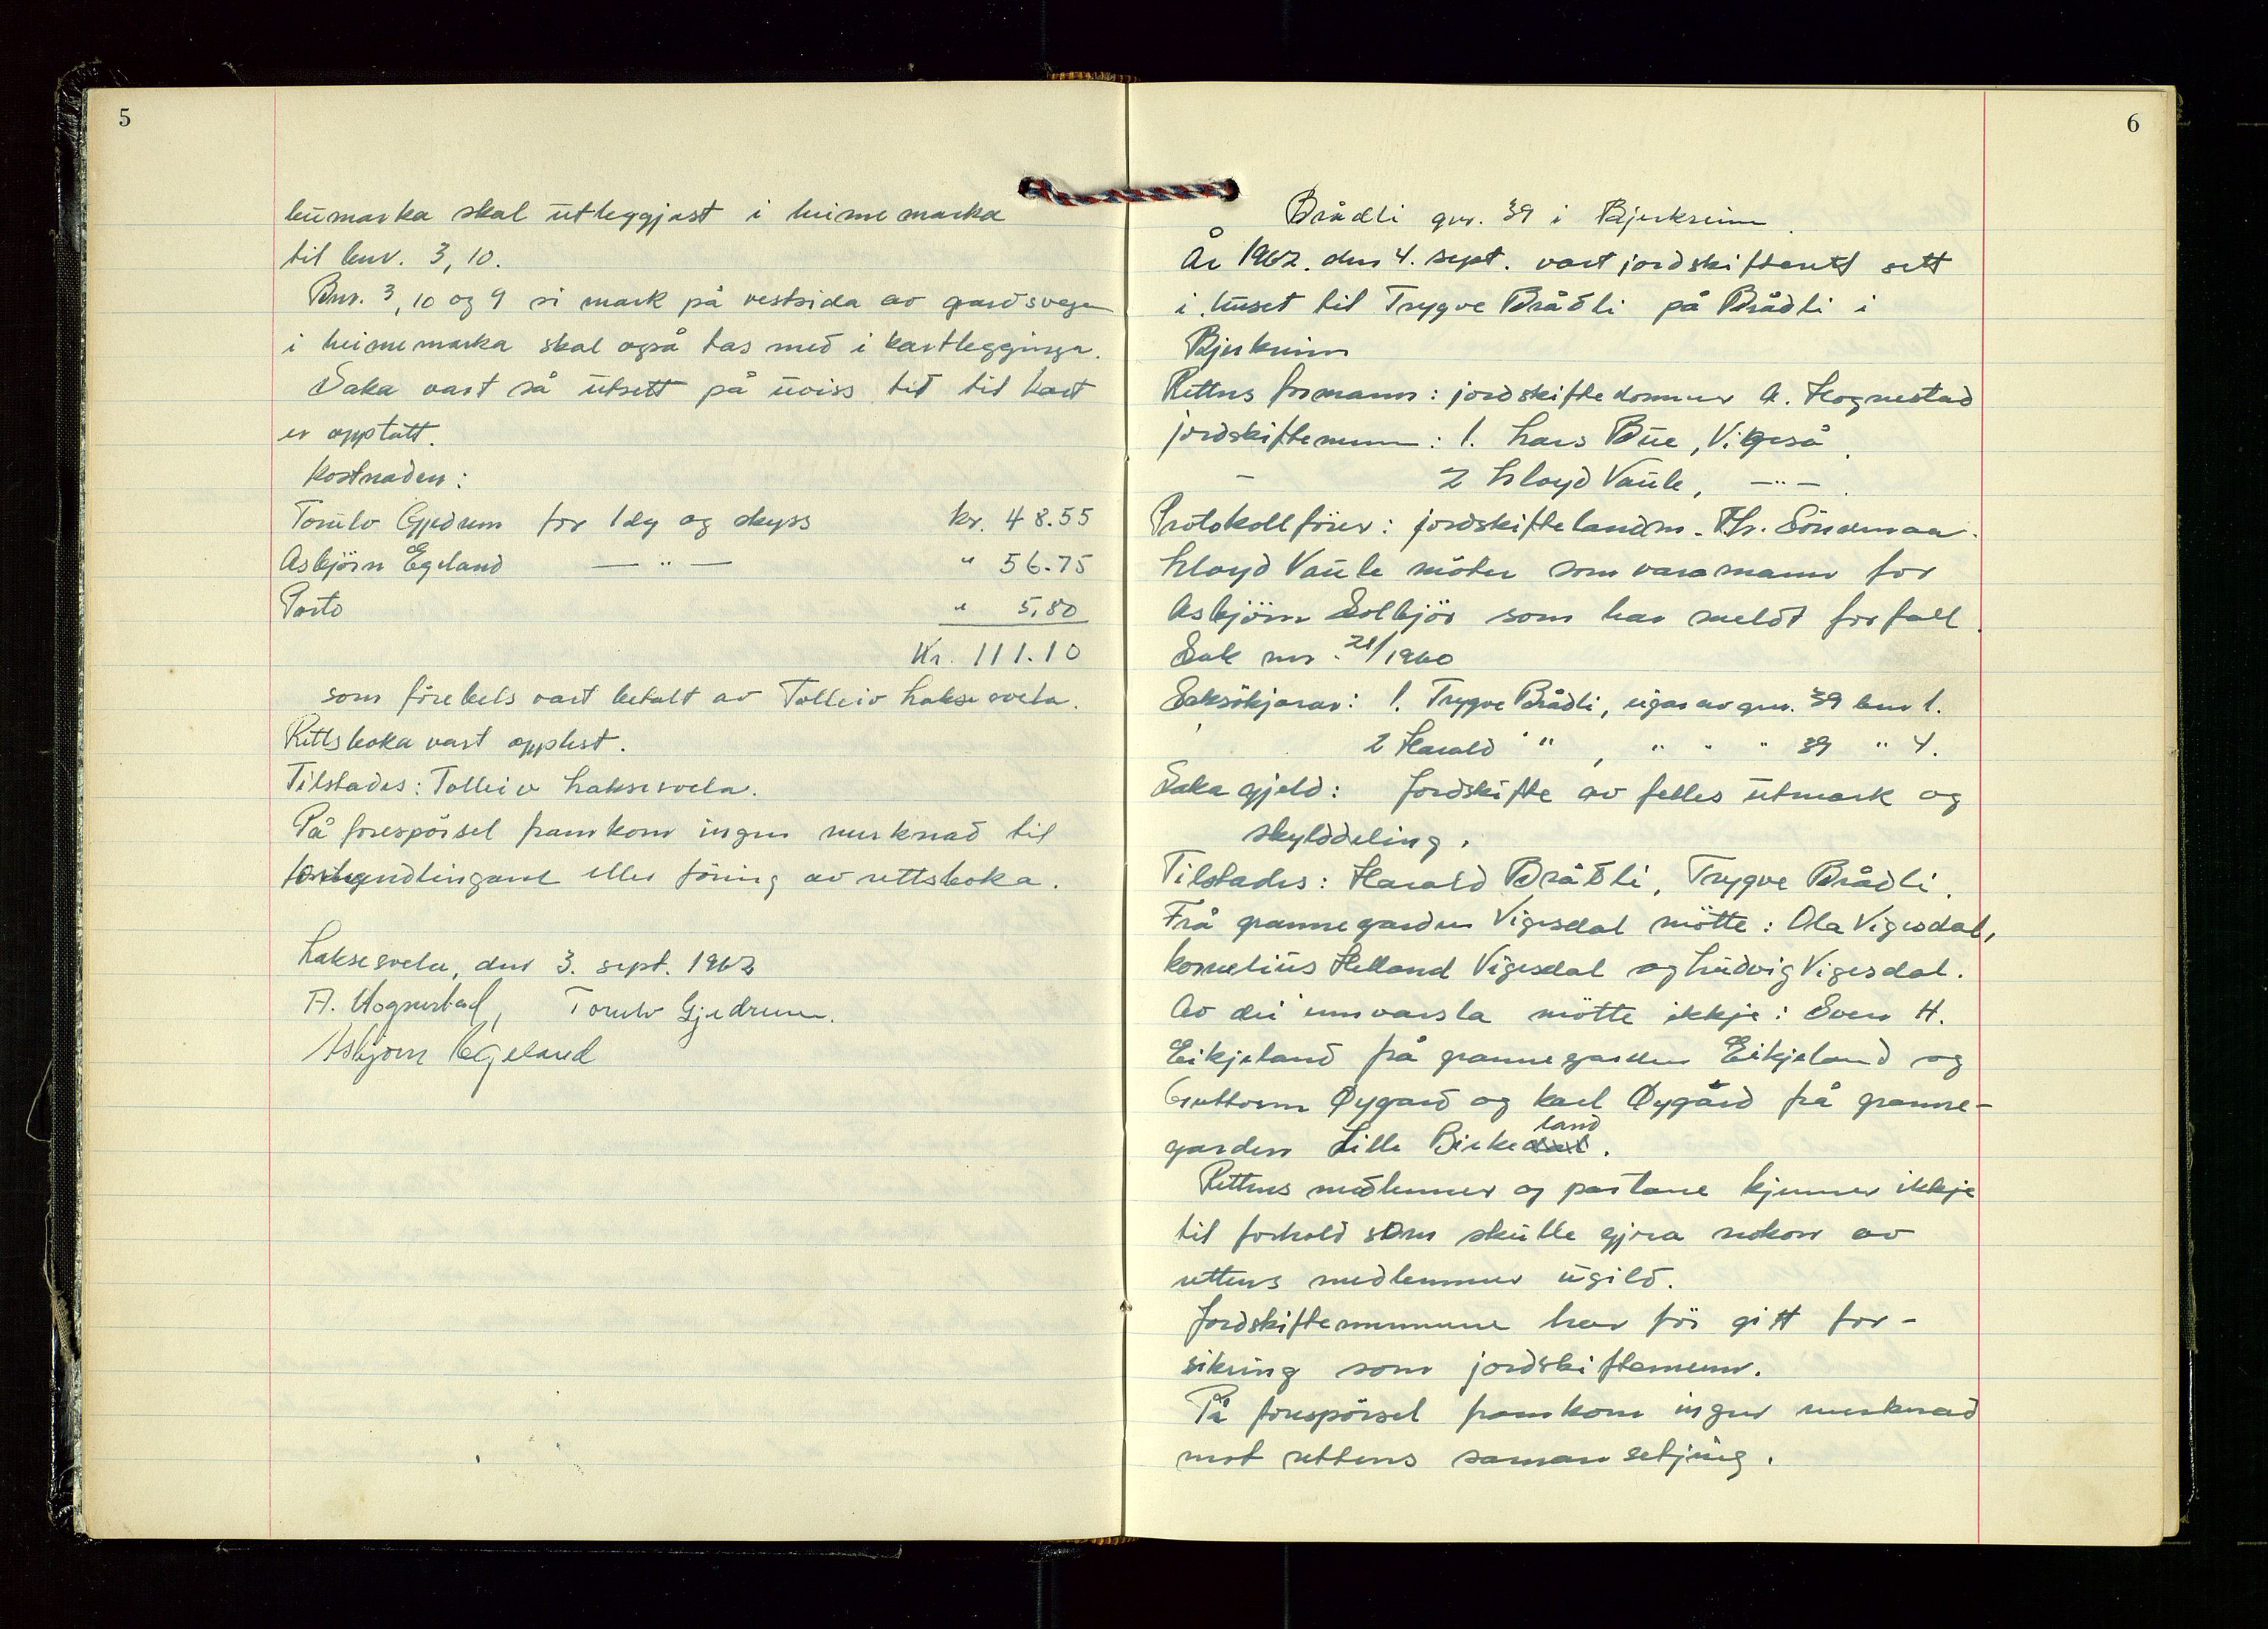 5
heimarka skal utleggjast i heimemarka
til bnr. 3, 10.
Bnr. 3, 10 og 9 si mark på vestsida av gardsvegen
i heimemarka skal også tas med i kartlegginga.
Saka vart så utsett på uviss tid til kart
er opptatt.
Kostnaden:
Torulv Gjedrem for 1 dg og skyss kr. 48.55
Asbjörn Egeland — " — " 56.75
Porto " 5,80
Kr. 111.10
som förebels vart betalt av Tolleiv Laksesvela.
Rettsboka vart opplest.
Tilstades: Tolleiv Laksesvela.
På forespörsel framkom ingen merknad til
forhandlingane eller föring av rettsboka.
Laksesvela, den 3. sept. 1962
A. Hognestad, Torulv Gjedrem.
Asbjørn Egeland
6
Brådli gnr. 39 i Bjerkreim.
År 1962. den 4. sept. vart jordskifterett sett
i huset til Trygve Brådli på Brådli i
Bjerkreim
Rettens formann: jordskiftedommer A. Hognestad
jordskiftemenn: 1. Lars Bue, Vikeså.
— 2 Lloyd Vaule, — " — .
Protokollförer: jordskiftelandm. Th. Söndenaa.
Lloyd Vaule möter som varamann for
Asbjörn Solbjör som har meldt forfall.
Sak nr. 21/1960
Saksökjarar: 1. Trygve Brådli, eigar av gnr. 39 bnr 1.
2 Harald " , " " " 39 " 4.
Saka gjeld: Jordskifte av felles utmark og
skylddeling.
Tilstades: Harald Brådli, Trygve Brådli.
Frå grannegarden Vigesdal mötte: Ola Vigesdal,
Kornelius Helland Vigesdal og Ludvig Vigesdal.
Av dei innvarsla mötte ikkje: Sven H.
Eikjeland frå grannegarden Eikjeland og
Guttorm Øygard og Karl Øygård frå granne-
garden Lille Birkedal land.
Rettens medlemmer og partane kjenner ikkje
til forhold som skulle gjera nokon av
rettens medlemmer ugild.
Jordskiftemennene har för gitt for-
sikring som jordskiftemenn.
På forespörsel framkom ingen merknad
mot rettens samansetjing.